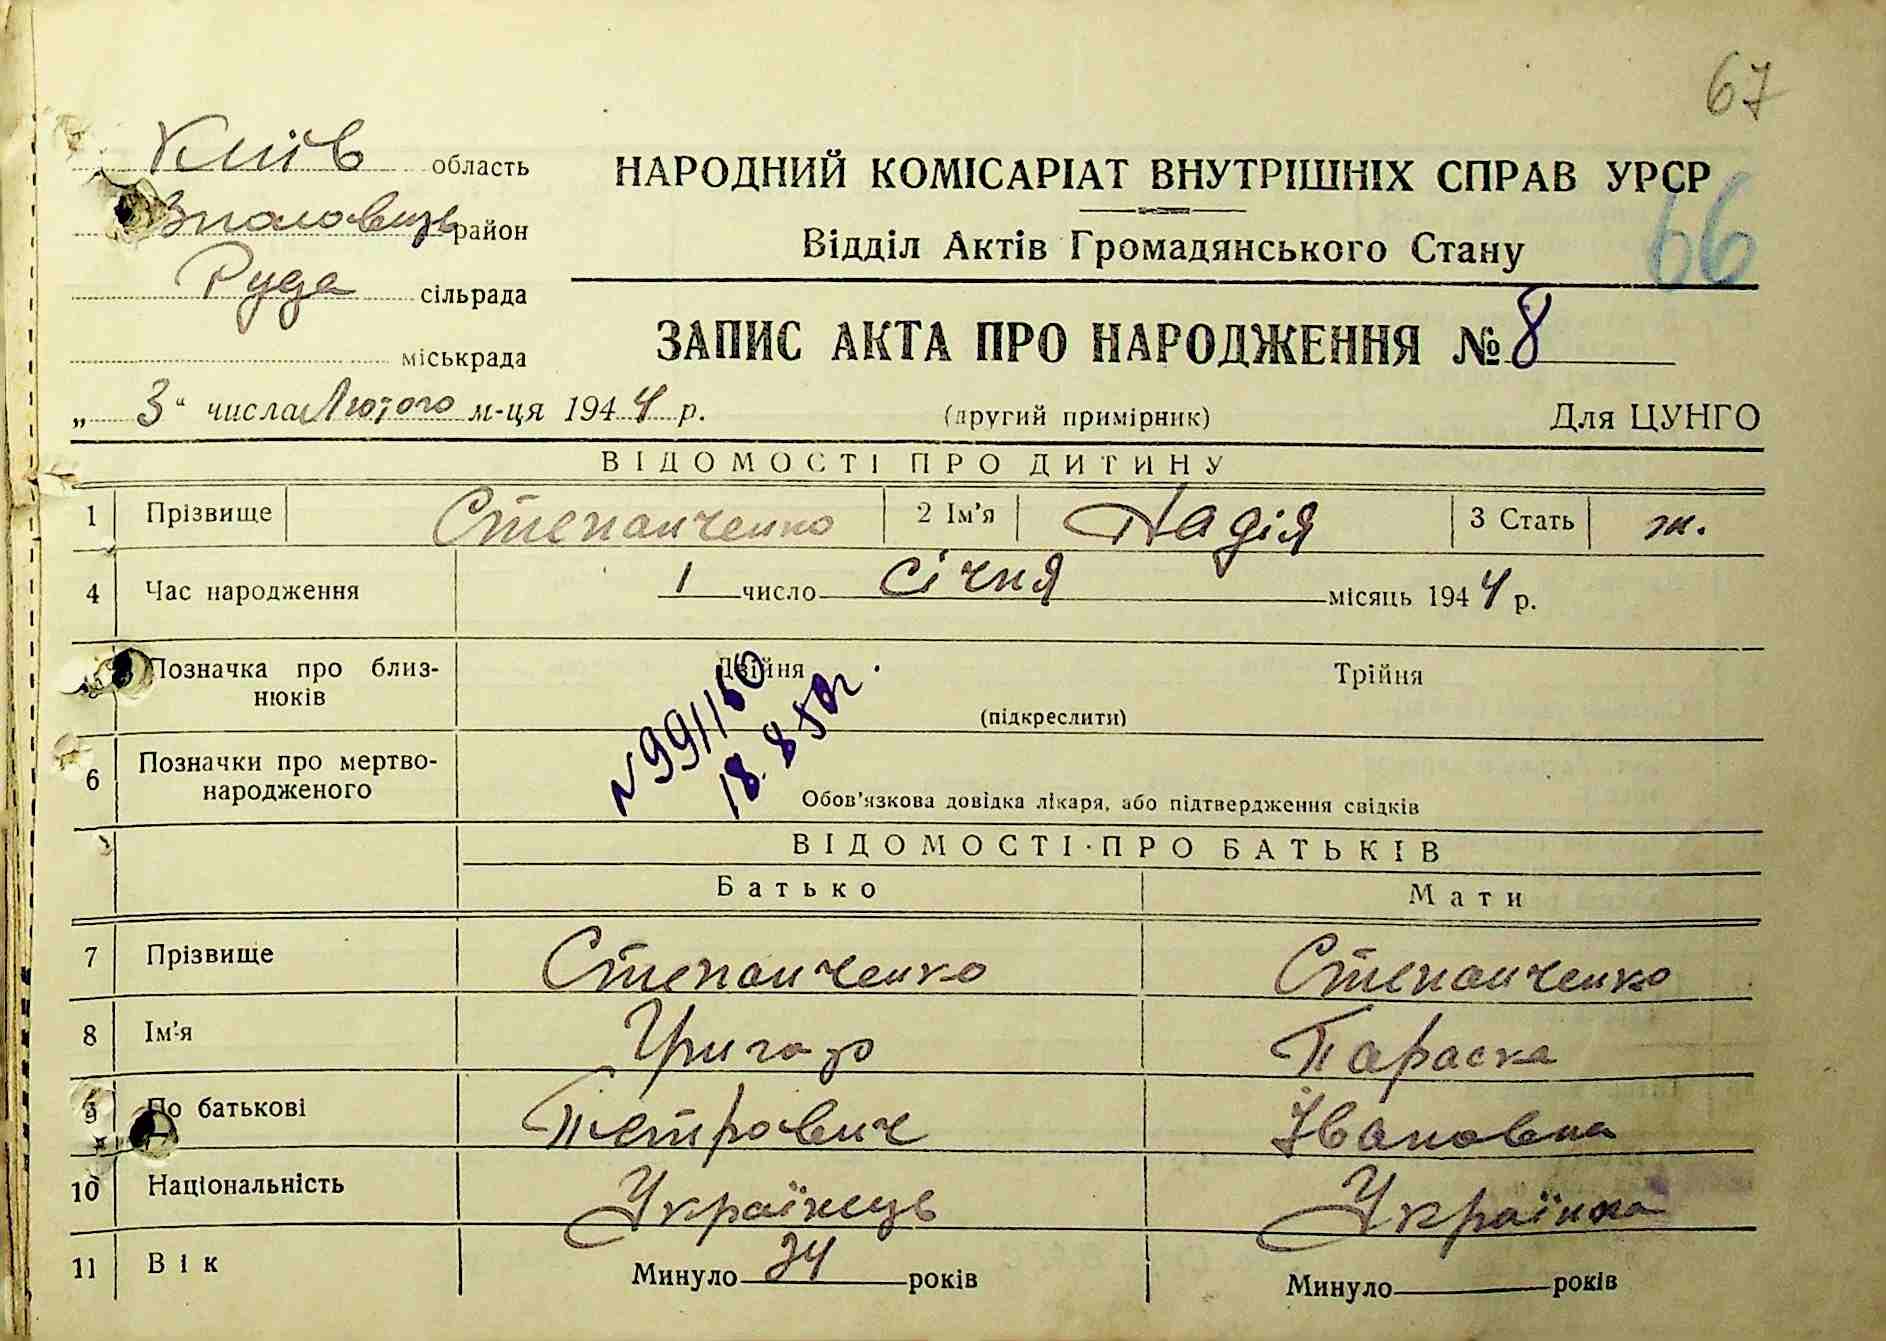 67
Київ область
НАРОДНИЙ КОМІСАРІАТ ВНУТРІШНІХ СПРАВ УРСР
район
66
Відділ Актів Громадянського Стану
Руда сільрада
ЗАПИС АКТА ПРО НАРОДЖЕННЯ № 8
міськрада
„ 3 “ числа Лютого м-ця 1944 р.
(другий примірник)
Для ЦУНГО
ВІДОМОСТІ ПРО ДИТИНУ
1 Прізвище Степанченко 2 Ім'я Надія 3 Стать ж.
4 Час народження 1 число Січня місяць 1944 р.
Позначка про близнюків Двійня Трійня
(підкреслити)
6 Позначки про мертвонародженого
№ 991160
18.8 50г.
Обов'язкова довідка лікаря, або підтвердження свідків
ВІДОМОСТІ ПРО БАТЬКІВ
Батько Мати
7 Прізвище Степанченко Степанченко
8 Ім'я Григор Параска
9 По батькові Петрович Івановна
10 Національність Українець Українка
11 Вік Минуло 34 років Минуло років